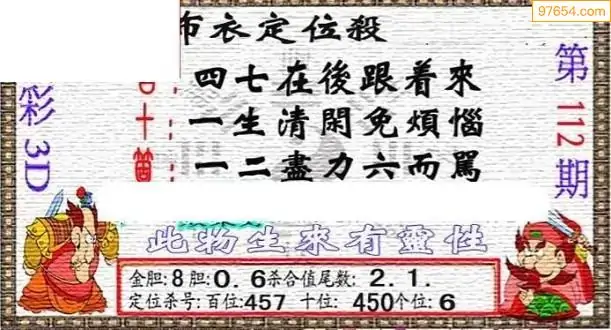 97654.com
布衣定位殺
四七在後跟着來
一生清閑免煩惱
一二盡力六而罵
彩3D
第112期
此物生來有靈性
金胆:8胆:0.6杀合值尾数:2.1.
定位杀号:百位:457 十位:450个位:6